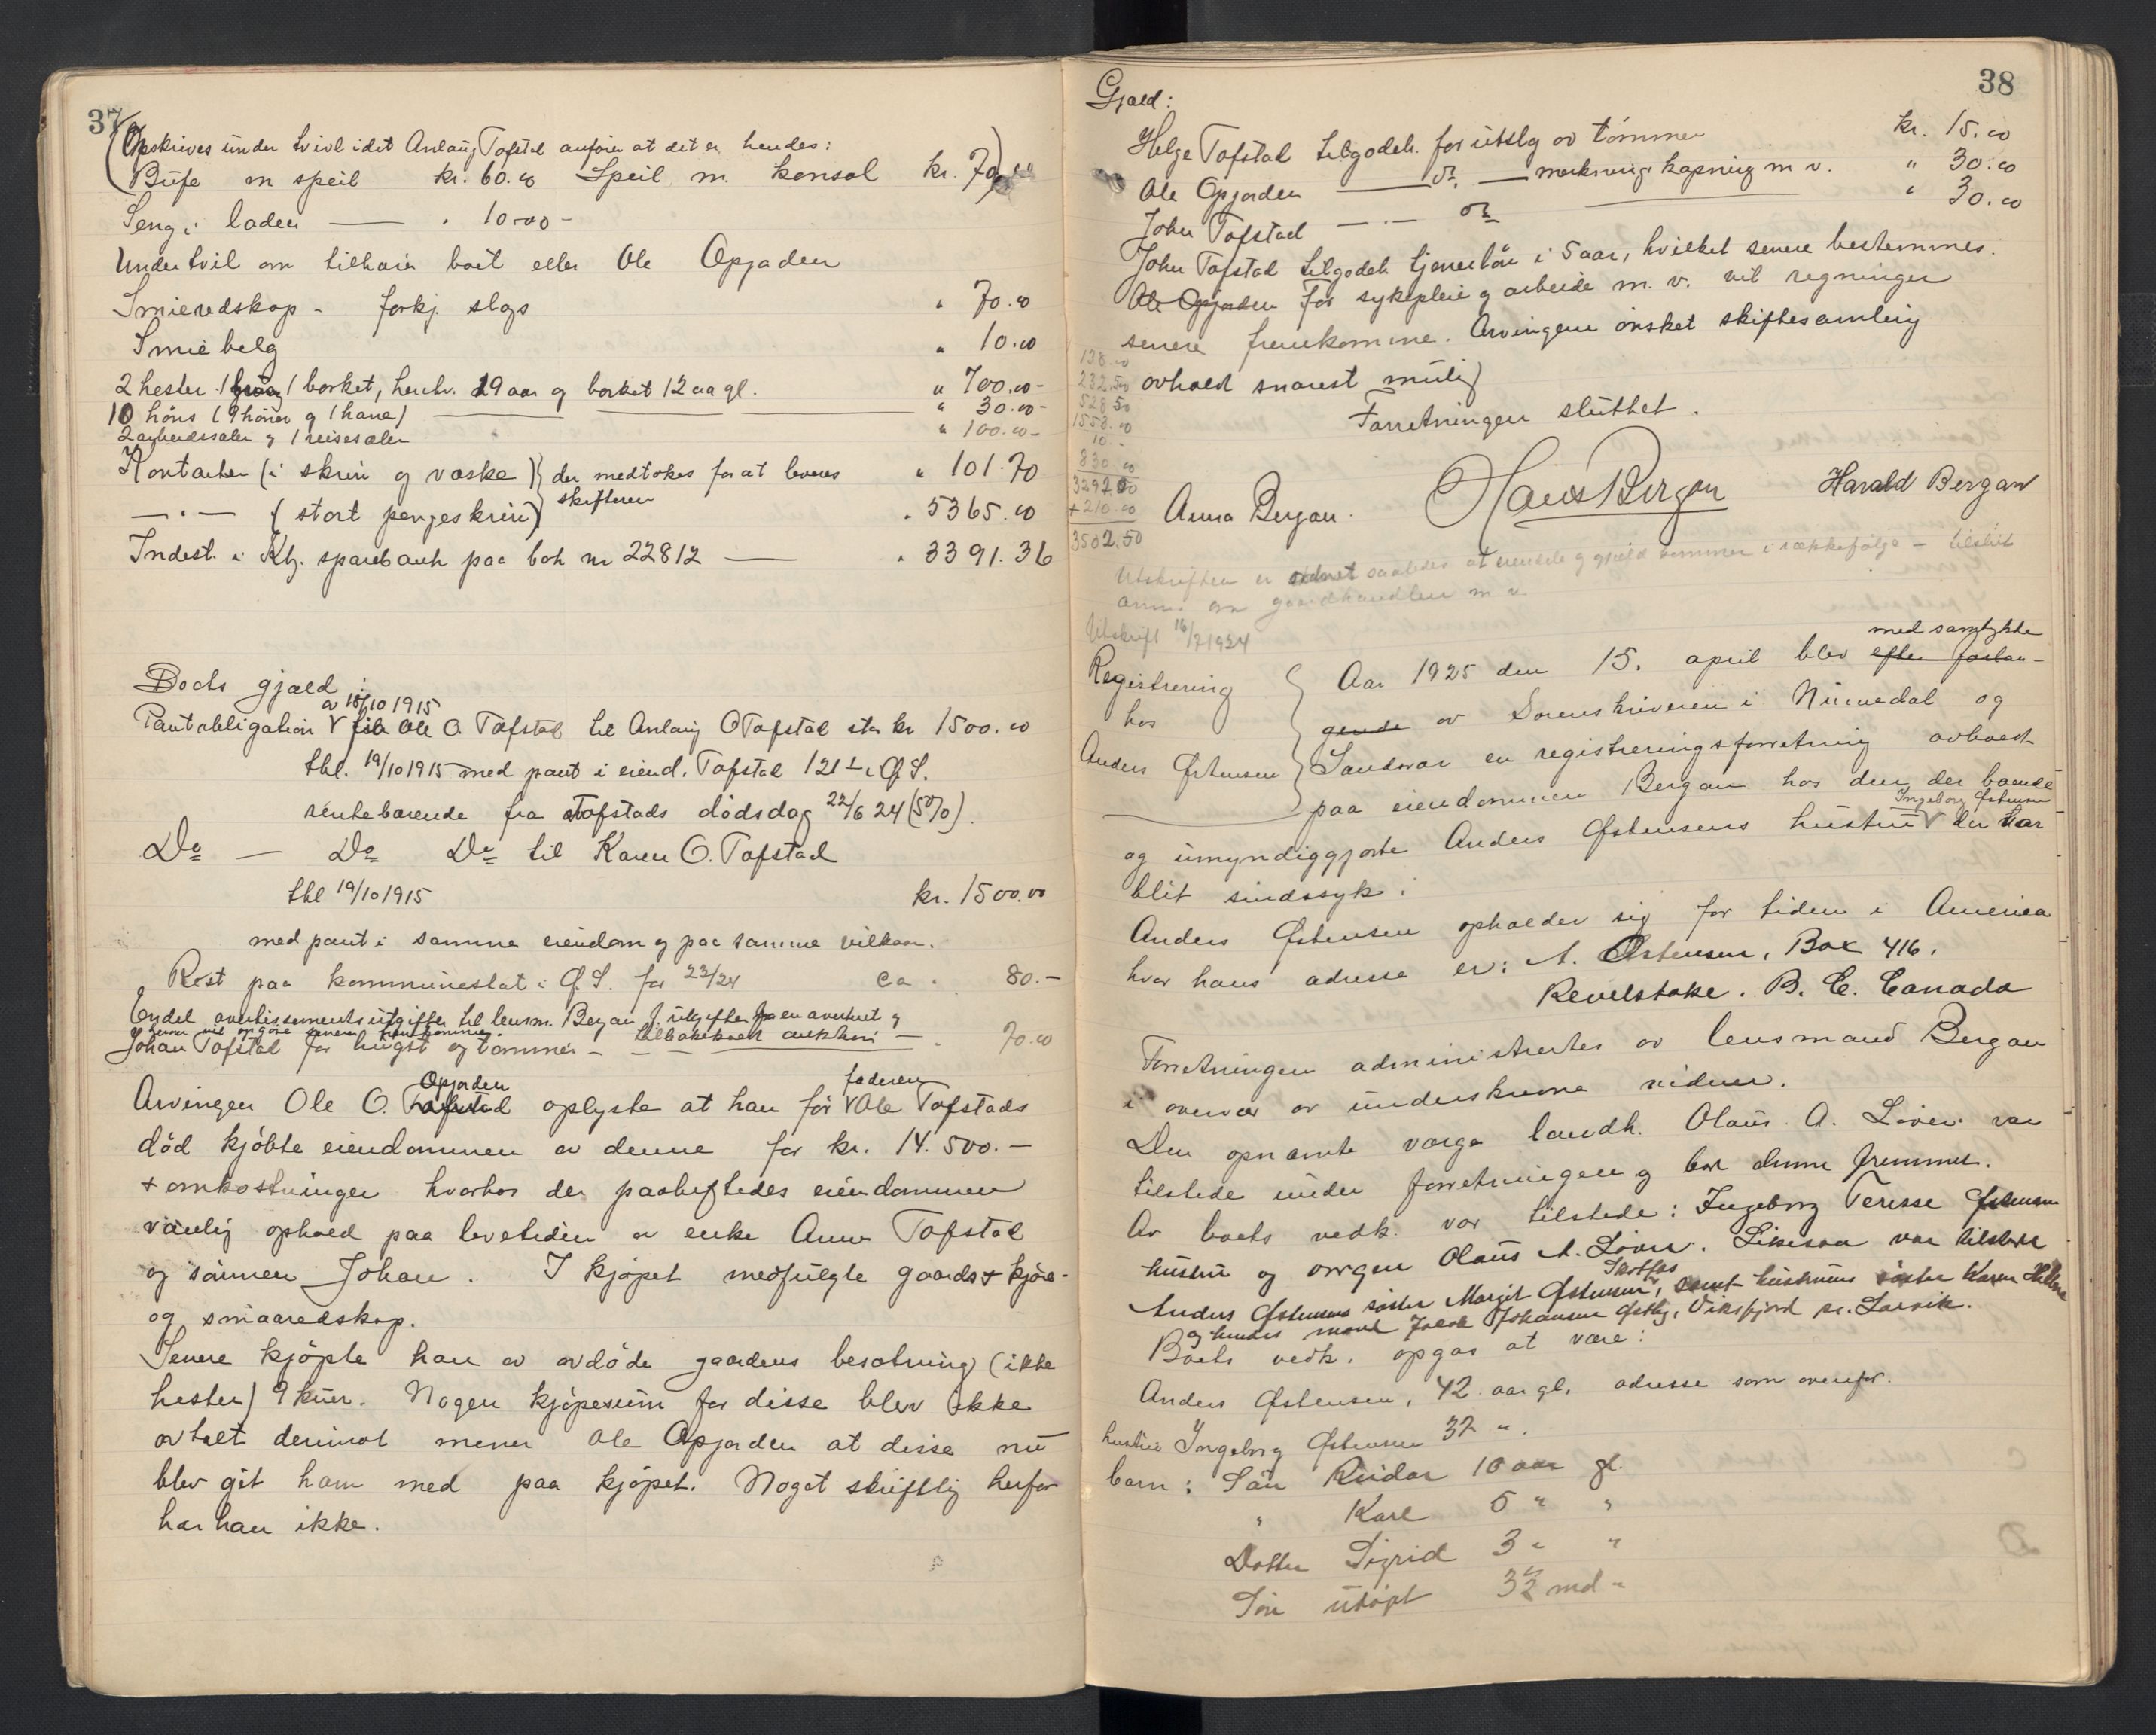 37
(Opskrives under tvivl idet Anlaug Tofstad anförer at det er hendes:
Büfe m speil kr. 60.00 Speil m. konsol kr. 70.00)
Seng i laden — " 10.00 -
Under tvil om tilhörer boet eller Ole Opjorden
Smieredskap - forkj. slags " 70.00
Smiebelg " 10.00
2 hester 1 1 borket, henhv. 19 aar og borket 12 aar gl. " 700.00 -
10 höns (9 höner og 1 hane) " 30.00 -
2 arbeidssaler og 1 reisesaler " 100.00 -
Kontanter (i skrin og væske) } der medtokes for at leveres " 101.70
— " — (stort pengeskrin) } skifteren " 5365.00
Indest. i Kbg. sparebank paa bok nr 22812 — " 3391.36
Boets gjæld:
av 18/10 1915
Pantobligation fra Ole O. Tofstad til Anlaug O Tofstad stor kr 1500.00
tbl. 19/10 1915 med pant i eiend. Tofstad 121 1 i Ø.S.
rentebærende fra Tofstads dödsdag 22/6 24 (5%).
Do — Do Do til Karen O. Tofstad
tbl 19/10 1915 kr. 1500.00
med pant i samme eiendom og paa samme vilkaar.
Rest paa kommuneskat i Ø.S. for 23/24 ca. 80.-
Endel avertissementsutgifter til lensm. Bergan f. utgifter for en avertert og
hvorom vil opgöre senere fremkomme. tilbakekaldt auktion — " 70.00
Johan Tofstad for hugst og tömmer - — —
Opjorden faderen
Arvingen Ole O. Tofstad oplyste at han för Ole Tofstads
död kjöbte eiendommen av denne for kr. 14.500.-
+ omkostninger hvorhos der paaheftedes eiendommen
vanlig ophold paa levetiden av enke Anne Tofstad
og sönnen Johan. I kjöpet medfulgte gaards + kjöre-
og smaaredskap.
Senere kjöpte han av avdöde gaardens besætning (ikke
hester) 9 kuer. Nogen kjöpesum for disse blev ikke
avtalt derimot mener Ole Opjorden at disse nu
blev git ham med paa kjöpet. Noget skriftlig herfor
har han ikke.
38
Gjæld:
Helge Tofstad tilgodeh. for utslag av tömmer kr. 15.00
Ole Opjorden — do — merkning kapning m v. " 30.00
John Tofstad — " — do " 30.00
John Tofstad tilgodeh. tjenerlön i 5 aar, hvilket senere bestemmes.
Ole Opjorden For sykepleie og arbeide m. v. vil regninger
senere fremkomme. Arvingene önsket skiftesamling
avholdt snarest mulig
Forretningen sluttet.
138.00
232.50
528.50
1558.00
10.-
830.00
3292.00
+ 210.00
3502.50
Anna Bergan. Hans Bergan Harald Bergan
Utskriften er ordnet saaledes at eiendele og gjæld kommer i rækkefölge - tilslut
anm. om gaardhandlen m v.
Utskrift 16/7 1924
Registrering
hos
Anders Østensen
med samtykke
Aar 1925 den 15. april blev efter forlan-
gende av Sorenskriveren i Numedal og
Sandsvær en registreringsforretning avholdt
paa eiendommen Bergan hos den der boende
Ingeborg Østensen
og umyndiggjorte Anders Østensens hustru der var
blit sindssyk.
Anders Østensen opholder sig for tiden i America
hvor hans adresse er: A. Østensen, Box 416.
Revelstoke. B. C. Canada
Forretningen administrertes av lensmand Bergan
i overvær av underskrevne vidner.
Den opnævnte værge landh. Olaus A. Löver var
tilstede under forretningen og bar denne fremmet.
Av boets vedk. var tilstede: Ingeborg Terisse Østensen
hustru og vergen Olaus A. Löver. Likesaa var tilstede
Skotfos
Anders Østensens söster Margit Østensen, samt hustruens söster Karen Helene
og hendes mand Jakob Johansen Østby, Viksfjord pr. Larvik.
Boets vedk. opgas at være:
Anders Østensen, 42 aar gl. adresse som ovenfor.
hustru Ingeborg Østensen 32 ".
barn: Sön Reidar 10 aar gl.
" Karl 5 " "
Datter Sigrid 3 " "
Sön udöpt 3½ md "